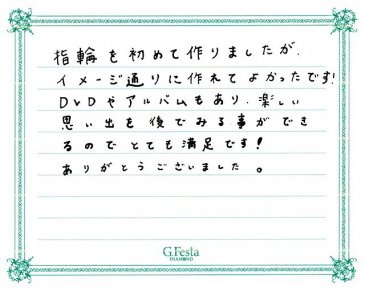 指輪を初めて作りましたが、
イメージ通りに作れてよかったです!
DVDやアルバムもあり、楽しい
思い出を後でみる事ができ
るのでとても満足です!
ありがとうございました。
G.Festa
DIAMOND